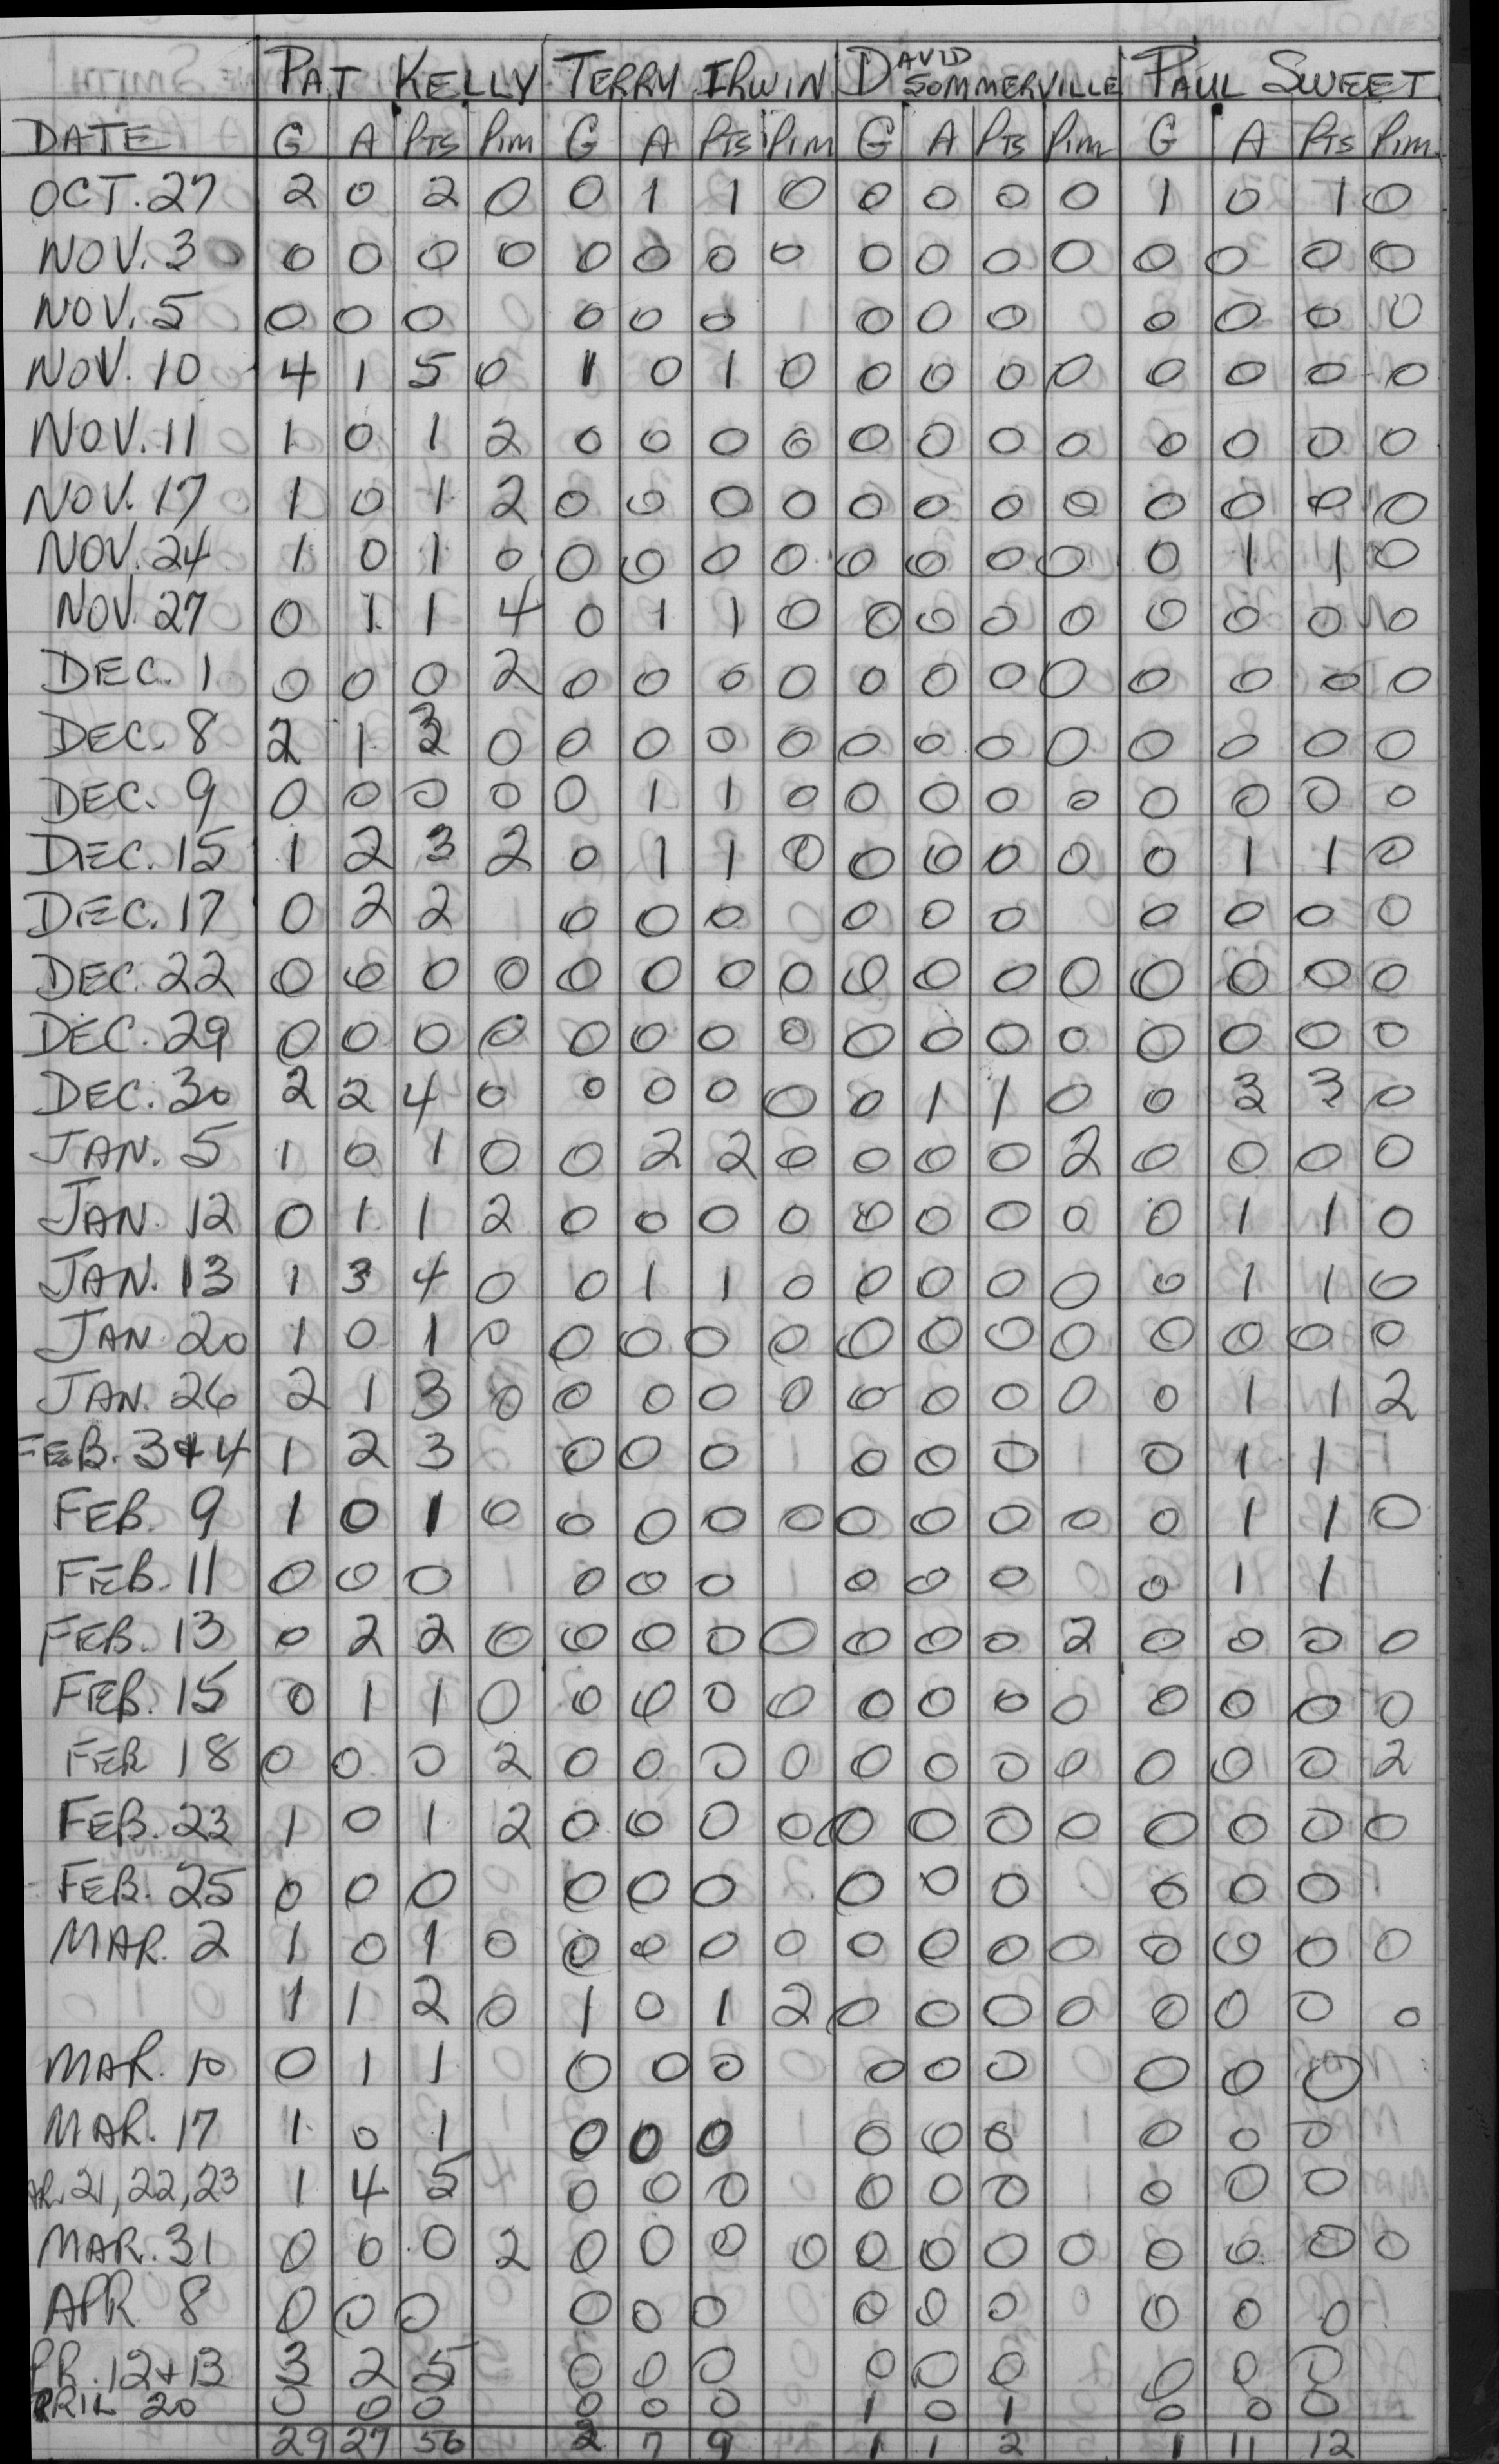 PAT KELLY TERRY IRWIN DAVID SOMMERVILLE PAUL SWEET
DATE G A Pts Pim G A Pts Pim G A Pts Pim G A Pts Pim
OCT. 27 2 0 2 0 0 1 1 0 0 0 0 0 1 0 1 0
NOV. 3 0 0 0 0 0 0 0 0 0 0 0 0 0 0 0 0
NOV. 5 0 0 0 0 0 0 0 0 0 0 0 0
NOV. 10 4 1 5 0 1 0 1 0 0 0 0 0 0 0 0 0
NOV. 11 1 0 1 2 0 0 0 0 0 0 0 0 0 0 0 0
NOV. 17 1 0 1 2 0 0 0 0 0 0 0 0 0 0 0 0
NOV. 24 1 0 1 0 0 0 0 0 0 0 0 0 0 1 1 0
NOV. 27 0 1 1 4 0 1 1 0 0 0 0 0 0 0 0 0
DEC. 1 0 0 0 2 0 0 0 0 0 0 0 0 0 0 0 0
DEC. 8 2 1 3 0 0 0 0 0 0 0 0 0 0 0 0 0
DEC. 9 0 0 0 0 0 1 1 0 0 0 0 0 0 0 0 0
DEC. 15 1 2 3 2 0 1 1 0 0 0 0 0 0 1 1 0
DEC. 17 0 2 2 0 0 0 0 0 0 0 0 0
DEC. 22 0 0 0 0 0 0 0 0 0 0 0 0 0 0 0 0
DEC. 29 0 0 0 0 0 0 0 0 0 0 0 0 0 0 0 0
DEC. 30 2 2 4 0 0 0 0 0 0 1 1 0 0 3 3 0
JAN. 5 1 0 1 0 0 2 2 0 0 0 0 2 0 0 0 0
JAN. 12 0 1 1 2 0 0 0 0 0 0 0 0 0 1 1 0
JAN. 13 1 3 4 0 0 1 1 0 0 0 0 0 0 1 1 0
JAN 20 1 0 1 0 0 0 0 0 0 0 0 0 0 0 0 0
JAN. 26 2 1 3 0 0 0 0 0 0 0 0 0 0 1 1 2
FEB. 3+4 1 2 3 0 0 0 0 0 0 0 1 1
FEB. 9 1 0 1 0 0 0 0 0 0 0 0 0 0 1 1 0
FEB. 11 0 0 0 0 0 0 0 0 0 0 1 1
FEB. 13 0 2 2 0 0 0 0 0 0 0 0 2 0 0 0 0
FEB. 15 0 1 1 0 0 0 0 0 0 0 0 0 0 0 0 0
FEB 18 0 0 0 2 0 0 0 0 0 0 0 0 0 0 0 2
FEB. 23 1 0 1 2 0 0 0 0 0 0 0 0 0 0 0 0
FEB. 25 0 0 0 0 0 0 0 0 0 0 0 0
MAR. 2 1 0 1 0 0 0 0 0 0 0 0 0 0 0 0 0
1 1 2 0 1 0 1 2 0 0 0 0 0 0 0 0
MAR. 10 0 1 1 0 0 0 0 0 0 0 0 0
MAR. 17 1 0 1 0 0 0 0 0 0 0 0 0
AR. 21, 22, 23 1 4 5 0 0 0 0 0 0 0 0 0
MAR. 31 0 0 0 2 0 0 0 0 0 0 0 0 0 0 0 0
APR 8 0 0 0 0 0 0 0 0 0 0 0 0
PR. 12+13 3 2 5 0 0 0 0 0 0 0 0 0
PRIL 20 0 0 0 0 0 0 1 0 1 0 0 0
29 27 56 2 7 9 1 1 2 1 11 12